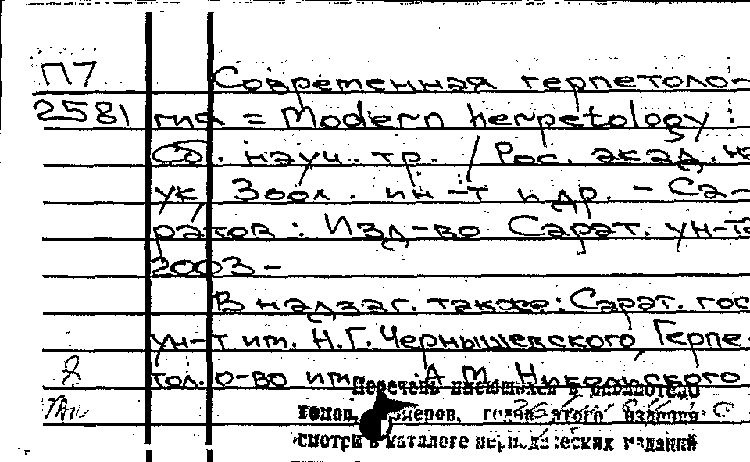 П7
Современная герпетоло-
2581
гия = Modern herpetology :
Сб. науч. тр. / Рос. акад. на-
ук, Зоол. ин-т и др. - Са-
ратов : Изд-во Сарат. ун-та
2003-
В надзаг. также: Сарат. гос
ун-т им. Н.Г. Чернышевского Герпе-
тол. о-во им. А.М. Никольского
Перечень имеющихся в библиотеке
томов, номеров, годов этого издания
смотри в каталоге периодических изданий